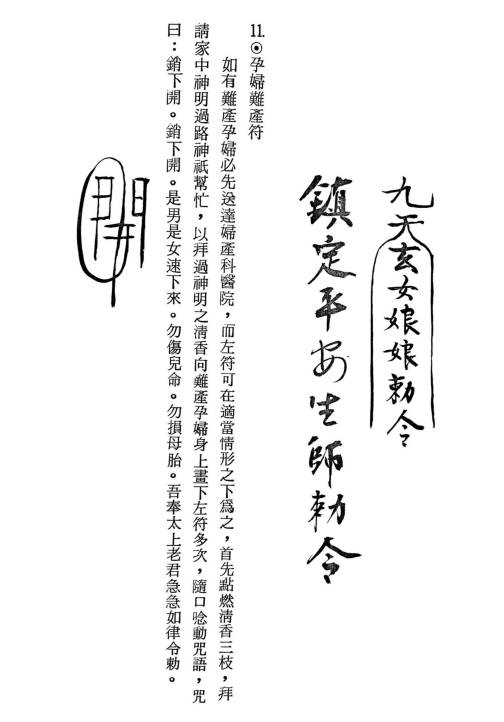 九天玄女娘娘勅令
鎮定平安生師勅令
11.⊙孕婦難產符
如有難產孕婦必先送達婦產科醫院，而左符可在適當情形之下爲之，首先點燃淸香三枝，拜
請家中神明過路神祇幫忙，以拜過神明之淸香向難產孕婦身上畫下左符多次，隨口唸動咒語，咒
曰：銷下開。銷下開。是男是女速下來。勿傷兒命。勿損母胎。吾奉太上老君急急如律令勅。
開